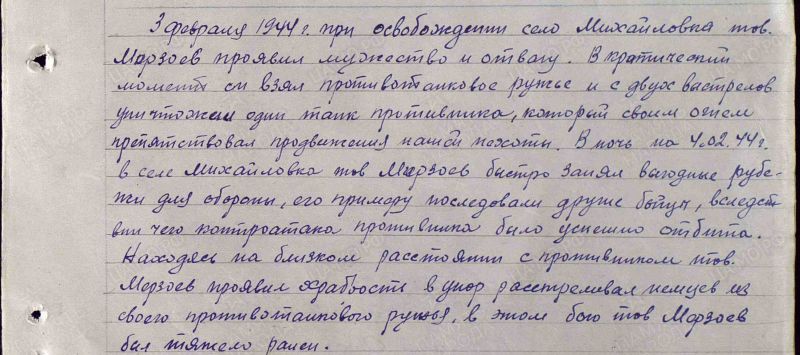 3 февраля 1944 г. при освобождении село Михайловка тов.
Мерзоев проявил мужество и отвагу. В критический
момент он взял противотанковое ружье и с двух выстрелов
уничтожил один танк противника, который своим огнем
препятствовал продвижения нашей пехоты. В ночь на 4.02.44 г.
в селе Михайловка тов Мерзоев быстро занял выгодные рубе-
жи для обороны, его примеру последовали другие бойцы, вследст
вии чего контратака противника было успешно отбита.
Находясь на близком расстоянии с противником тов.
Мерзоев проявил храбрость в упор расстреливал немцев из
своего противотанкового ружья, в этом бою тов Мерзоев
был тяжело ранен.